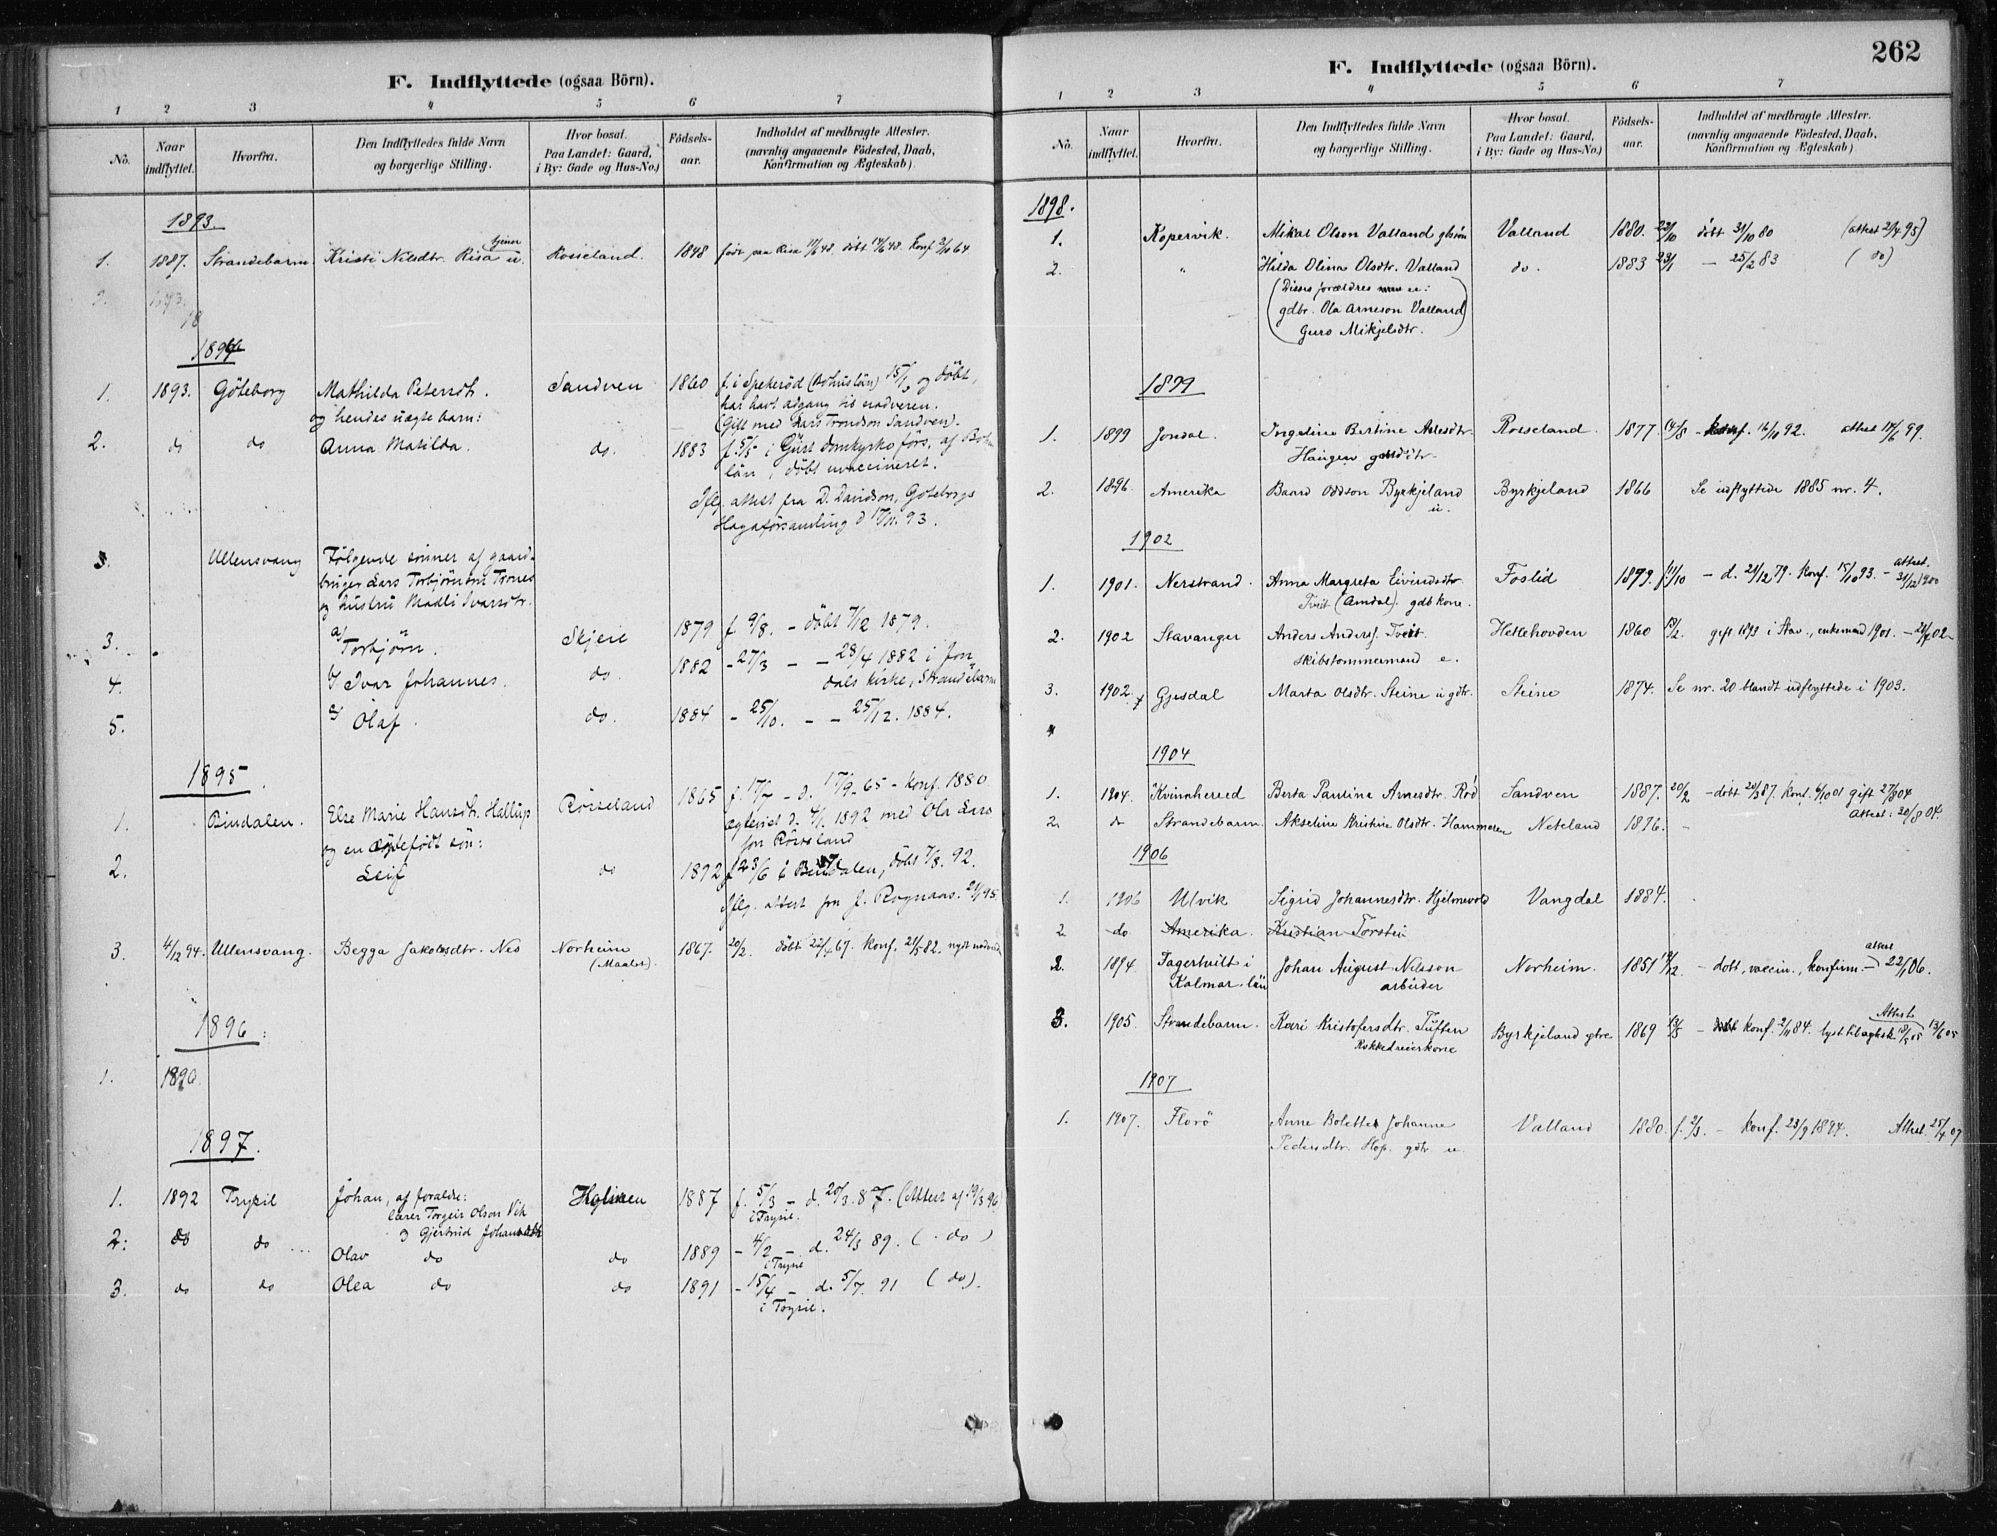 F. Indflyttede (ogsaa Börn).
1 2 3 4 5 6 7
No. Naar indflyttet. Hvorfra. Den Indflyttedes fulde Navn og borgerlige Stilling. Hvor bosat. Paa Landet: Gaard, i By: Gade og Hus-No.) Fødsels-aar. Indholdet af medbragte Attester. (navnlig angaaende Födested, Daab, Konfirmation og Ægteskab)
1893.
1. 1887. Strandebarm Kristi Nilsdtr. Risa u. tjener Rosseland. 1848 født paa Risa 11/6 48 døbt 14/6 48. konf. 2/10 64
2. 1893.
18
1894
1. 1893. Göteborg Mathilda Petersdtr. Sandven 1860 f. i Spekeröd (Bohuslän) 15/ og döbt,
og hendes uægte barn: har havt adgang til nadveren.
(Gift med Lars Trondson Sandven).
2. do do Anna Matilda. do. 1883 f. 5/5 i Gust domkyrkoförs. af Boh
län, döbt uvaccineret.
Iflg. attest fra D. Davidson, Göteborgs
Hagaförsamling d 17/11. 93.
3. Ullensvang Følgende sönner af gaard-
bruger Lars Torbjörnson Trones
og hustru Madli Ivarsdtr.
3. a) Torbjörn. Skjeie 1879 f. 9/8. - döbt 7/12 1879.
4. b) Ivar Johannes. do. 1882 - 27/3 - - 28/4 1882 i Jon
dals kirke, Strandebarm
5. c) Olaf. do. 1884 - 25/10. - - 25/12. 1884.
1895.
1. Bindalen. Else Marie Hansdtr. Hallups Rösseland 1865 f. 17/7 - d. 17/9 - 65 - konf. 1880
og en ægtefödt sön: ægteviet d. 4/1 1892 med Ola Lars
son Rösseland
2. Leif do 1892 f 23/6 i Bindalen, döbt 7/8. 92.
Iflg. attest fra J. Rognaas. 21/1 95
3. 4/12 94. Ullensvang. Begga Jakobsdtr. Nes Norheim (Maalet). 1867. 20/2. döbt 22/4 67. konf. 21/5 82. nydt nadver
1896.
1. 1890.
1897.
1. 1892 Trysil Johan, af foraldre: Halmen 1887 f. 5/3 - d. 20/3. 87. (Attest af 19/3 96
lærer Torgeir Olson Vik i Trysil.
og Gjertrud Johannesdtr
2. do do Olav do do 1889 - 4/2 - d. 24/3 89. (do)
i Trysil
3. do do Olea do do 1891 - 15/4 - d. 5/7. 91 (do).
i Trysil.
262
F. Indflyttede (ogsaa Börn).
1 2 3 4 5 6 7
No. Naar indflyttet. Hvorfra. Den Indflyttedes fulde Navn og borgerlige Stilling. Hvor bosat. Paa Landet: Gaard, i By: Gade og Hus-No.) Födsels-aar. Indholdet af medbragte Attester. (navnlig angaaende Födested, Daab, Konfirmation og Ægteskab)
1898.
1. Kopervik. Mikal Olson Valland gbsön Valland 1880. 22/10 döbt 31/10 80 (attest 2/4 95)
2. " Hilda Olina Olsdtr. Valland do. 1883 23/1 - 25/2 83 (do)
(Disses foræeldres er:
gdbr. Ola Arneson Valland
Guro Mikjelsdtr.
1899
1. 1899 Jondal. Ingeline Bertine Aslesdtr. Rosseland. 1877. 14/8 - konf. 16/10 92. attest 14/6 99.
Haugen gdtr.
2. 1896. Amerika Baard Oddson Byrkjeland Byrkjeland 1866 Se udflyttede 1885 nr. 4.
u.
1902
1. 1901. Nerstrand. Anna Margreta Eivindsdtr. Foslid 1879. 11/10 - d. 21/12 79. konf. 15/10 93. - attest. 31/12 1900
Tveit (Amdal). gdbkone.
2. 1902 Stavanger Anders Anders. Tveit. Hellehovden 1860 18/2. gift 1893 i Stav., enkemand 1901. - 21/7 02
Skibstømmermand e.
3. 1902. Gjesdal Marta Olsdtr. Steine u gdtr. Steine 1874. Se nr. 20 blandt udflyttede i 1903.
1904
1. 1904. Kvinnhered Berta Paulina Arnesdtr. Röd Sandven 1887. 20/2 - döbt 20/3 87. konf. 6/10 01 gift 27/3 04
Attest: 20/8 04.
2. do Strandebarm. Akseline Kristine Olsdtr. Hammeren Neteland 1876. -
1906
1. 1906 Ulvik Sigrid Johannesdtr. Hjelmevold Vangdal 1884.
2 do. Amerika. Kristian Torstei
2. 1894. Fagerhult i Johan August Nilsson Norheim. 1851 12 - döbt, vaccin., konfirm. - attest 22/1 06.
Kalmar län arbeider
3. 1905. Strandebarm. Kari Kristofersdtr. Tuften Byrkjeland ytre 1869 13/5 - konf. 2/11 84. lyst til ægtesk. Attest 13/6 05
Rokkedreierkone
1907
1. 1907. Florö Anne Bolette Johanne Valland 1880. f. 2/3. - konf. 23/9 1894. Attest. 25/4 07
Pedersdtr. Hop. gdtr u.